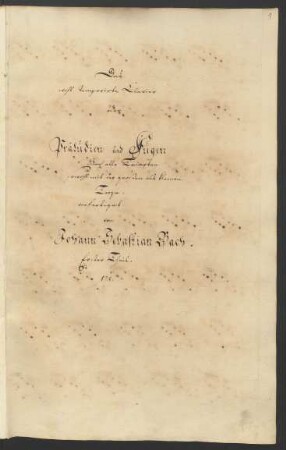 Das
wohl temperirte Clavier
oder
Präludien und Fugen
durch alle Töne
sowohl mit der großen als kleinen
Terz
von
Johann Sebastian Bach.
Erster Theil.